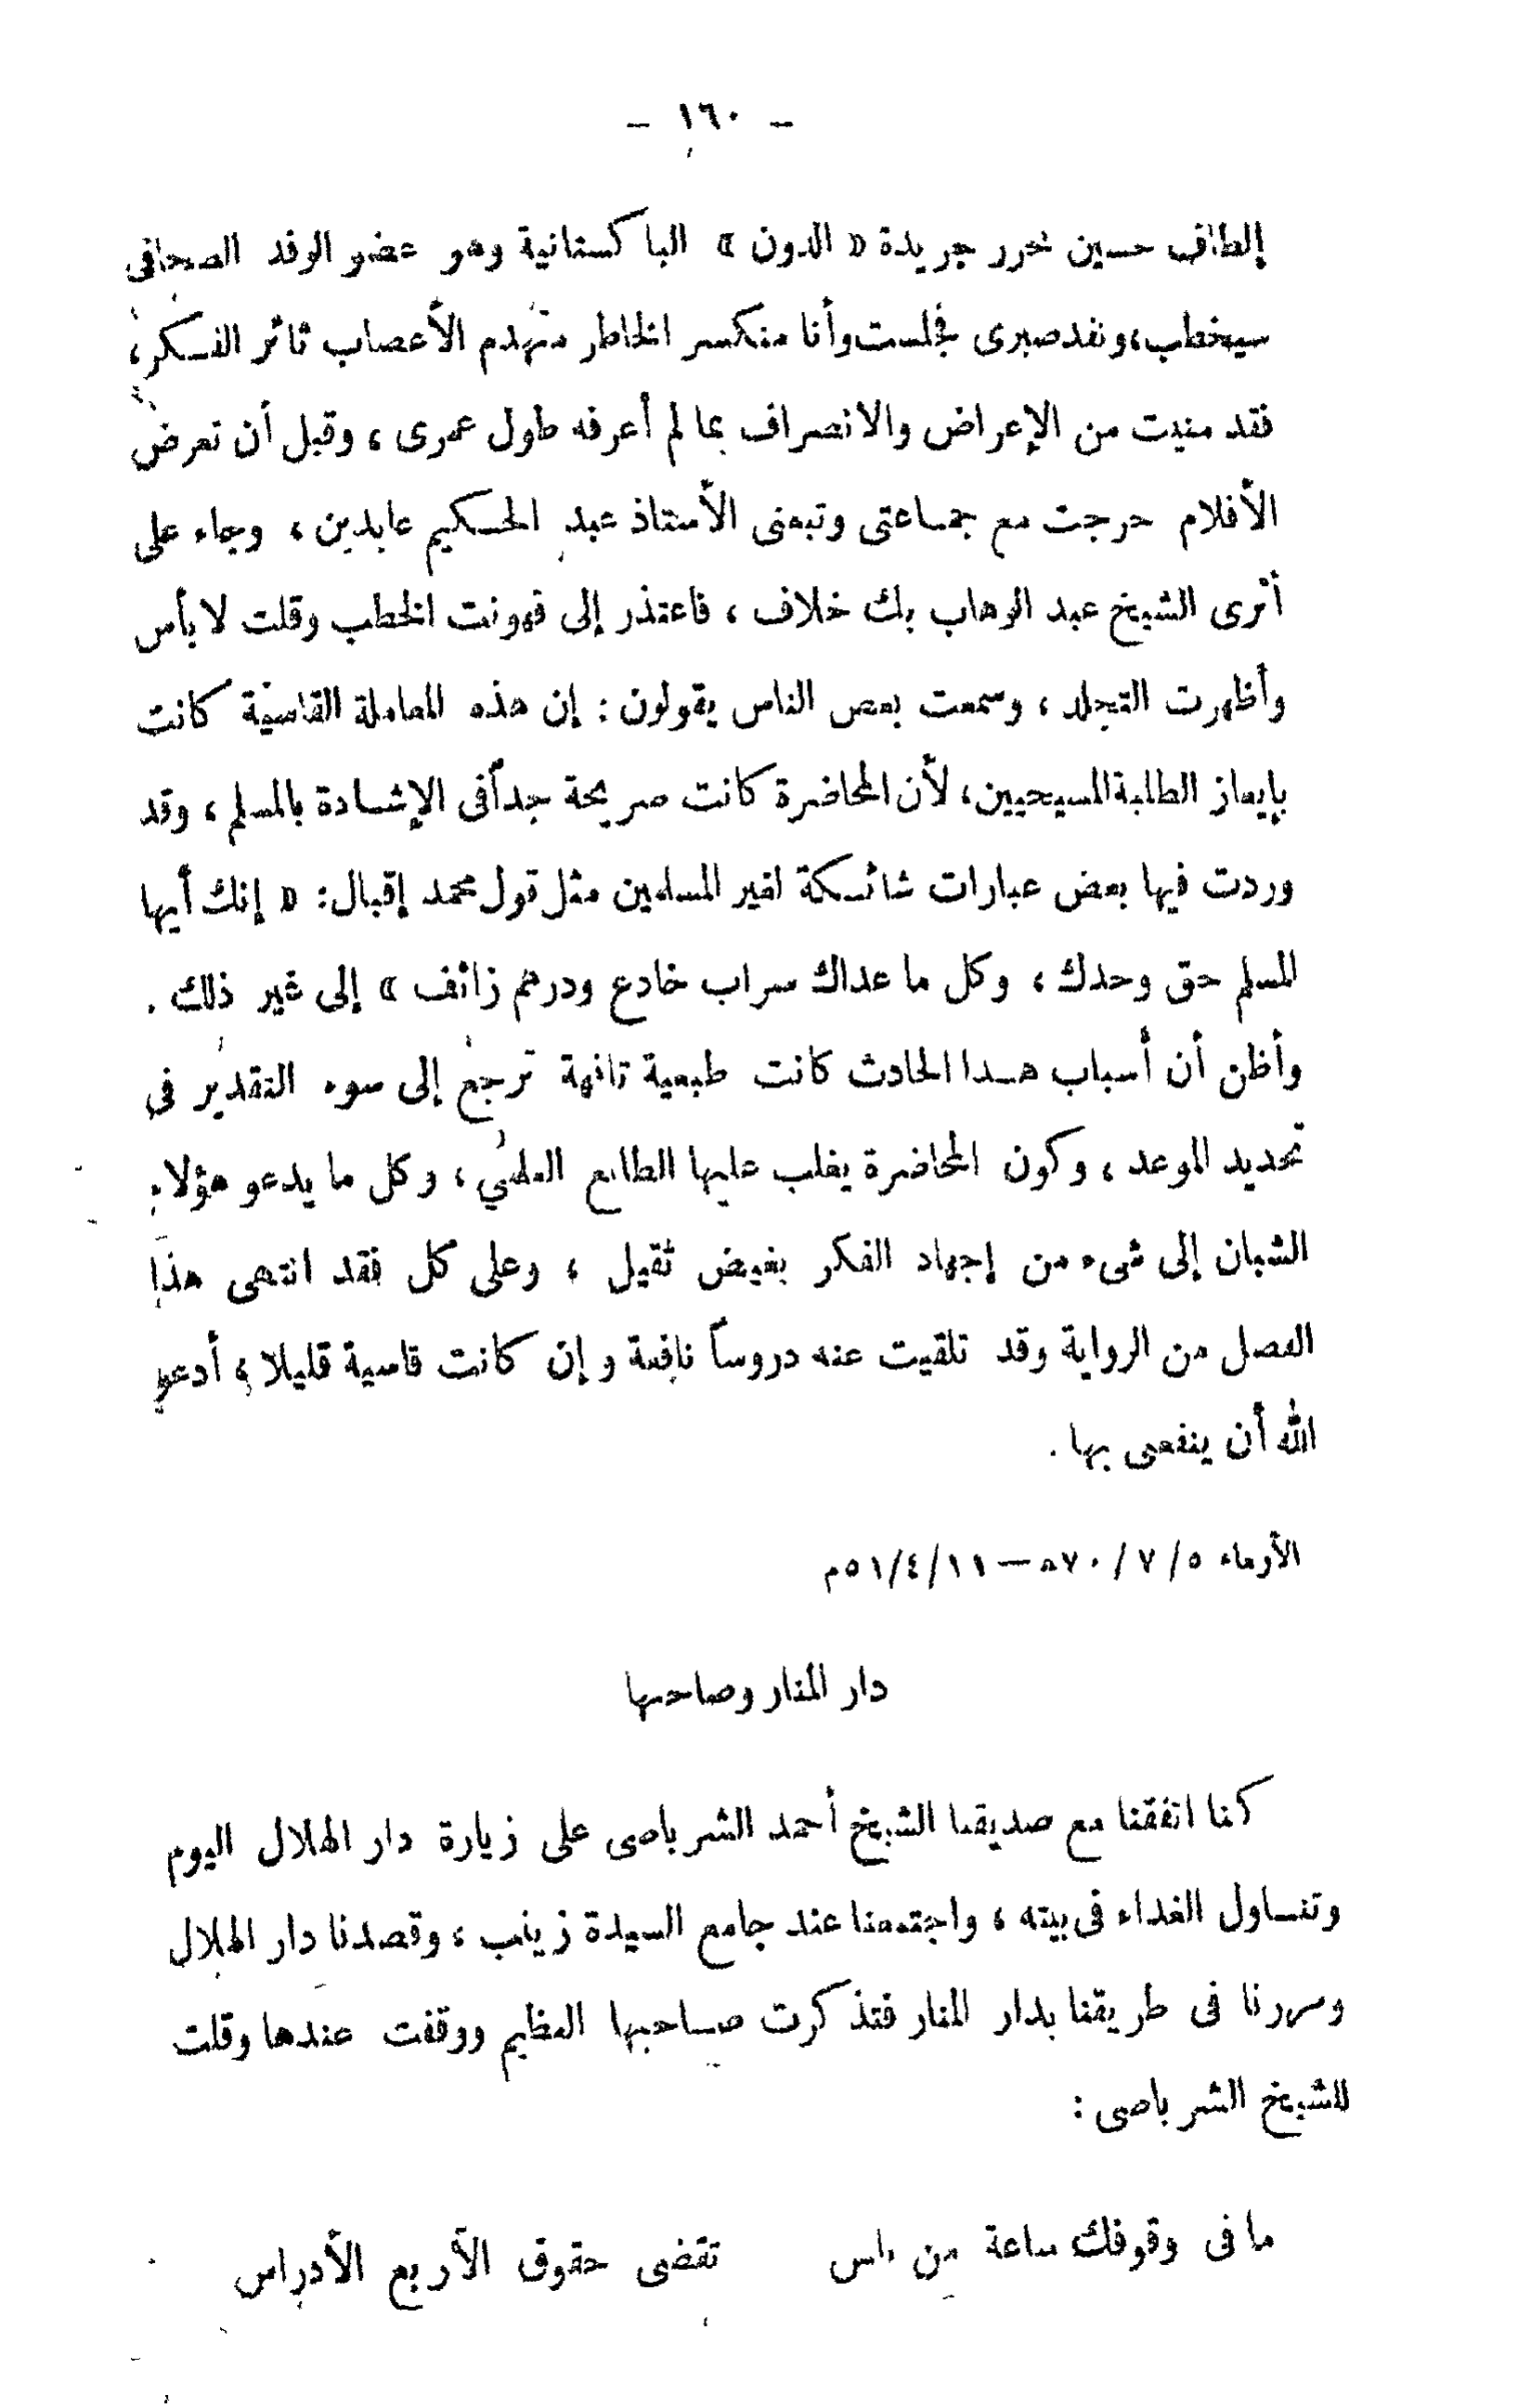 – ١٦٠ –
إلطاف حسين محرر جريدة « الدون » الباكستانية وهو عضو الوفد الصحافى
سيخطب، ونفد صبرى فجلست وأنا منكسر الخاطر متهدم الأعصاب ثائر الفكر،
فقد منيت من الإعراض والانصراف بما لم أعرفه طول عمرى ، وقبل أن تعرض
الأفلام خرجت مع جماعتى وتبعنى الأستاذ عبد الحكيم عابدين ، وجاء على
أثرى الشيخ عبد الوهاب بك خلاف ، فاعتذر إلى فهونت الخطب وقلت لا بأس
وأظهرت التجلد ، وسمعت بعض الناس يقولون : إن هذه المعاملة القاسية كانت
بإيعاز الطلبة المسيحيين، لأن المحاضرة كانت صريحة جداً فى الإشادة بالمسلم ، وقد
وردت فيها بعض عبارات شائكة لغير المسلمين مثل قول محمد إقبال: « إنك أيها
المسلم حق وحدك ، وكل ما عداك سراب خادع ودرهم زائف » إلى غير ذلك .
وأظن أن أسباب هذا الحادث كانت طبعية تافهة ترجع إلى سوء التقدير فى
تحديد الموعد ، وكون المحاضرة يغلب عليها الطابع العلمي ، وكل ما يدعو هؤلاء
الشبان إلى شىء من إجهاد الفكر بغيض ثقيل ، وعلى كل فقد انتهى هذا
الفصل من الرواية وقد تلقيت عنه دروساً نافعة وإن كانت قاسية قليلا ، أدعو
الله أن ينفعنى بها .
الأربعاء ٥/ ٧ /٧٠هـ — ٥١/٤/١١م
دار المنار وصاحبها
كنا اتفقنا مع صديقنا الشيخ أحمد الشرباصى على زيارة دار الهلال اليوم
وتناول الغداء فى بيته ، واجتمعنا عند جامع السيدة زينب ، وقصدنا دار الهلال
ومررنا فى طريقنا بدار المنار فتذكرت صاحبها العظيم ووقفت عندها وقلت
للشيخ الشرباصى :
ما فى وقوفك ساعة من باس تقضى حقوق الأربع الأدراس